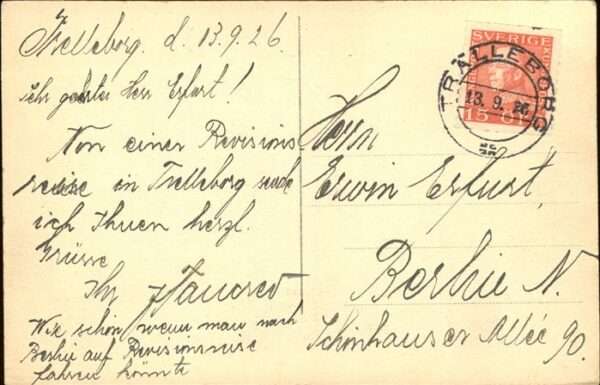 Trelleborg. d. 13.9.26.
Sehr geehrter Herr Erfurt!
Von einer Revisions
reise in Trelleborg sende
ich Ihnen herzl.
Grüsse
Ihr
Wie schön, wenn man nach
Berlin auf Revisionsreise
fahren könnte
SVERIGE
15 ÖRE
TRÄLLEBORG
13. 9. 26
Herrn
Erwin Erfurt,
Berlin N.
Schönhauser Allée 90.